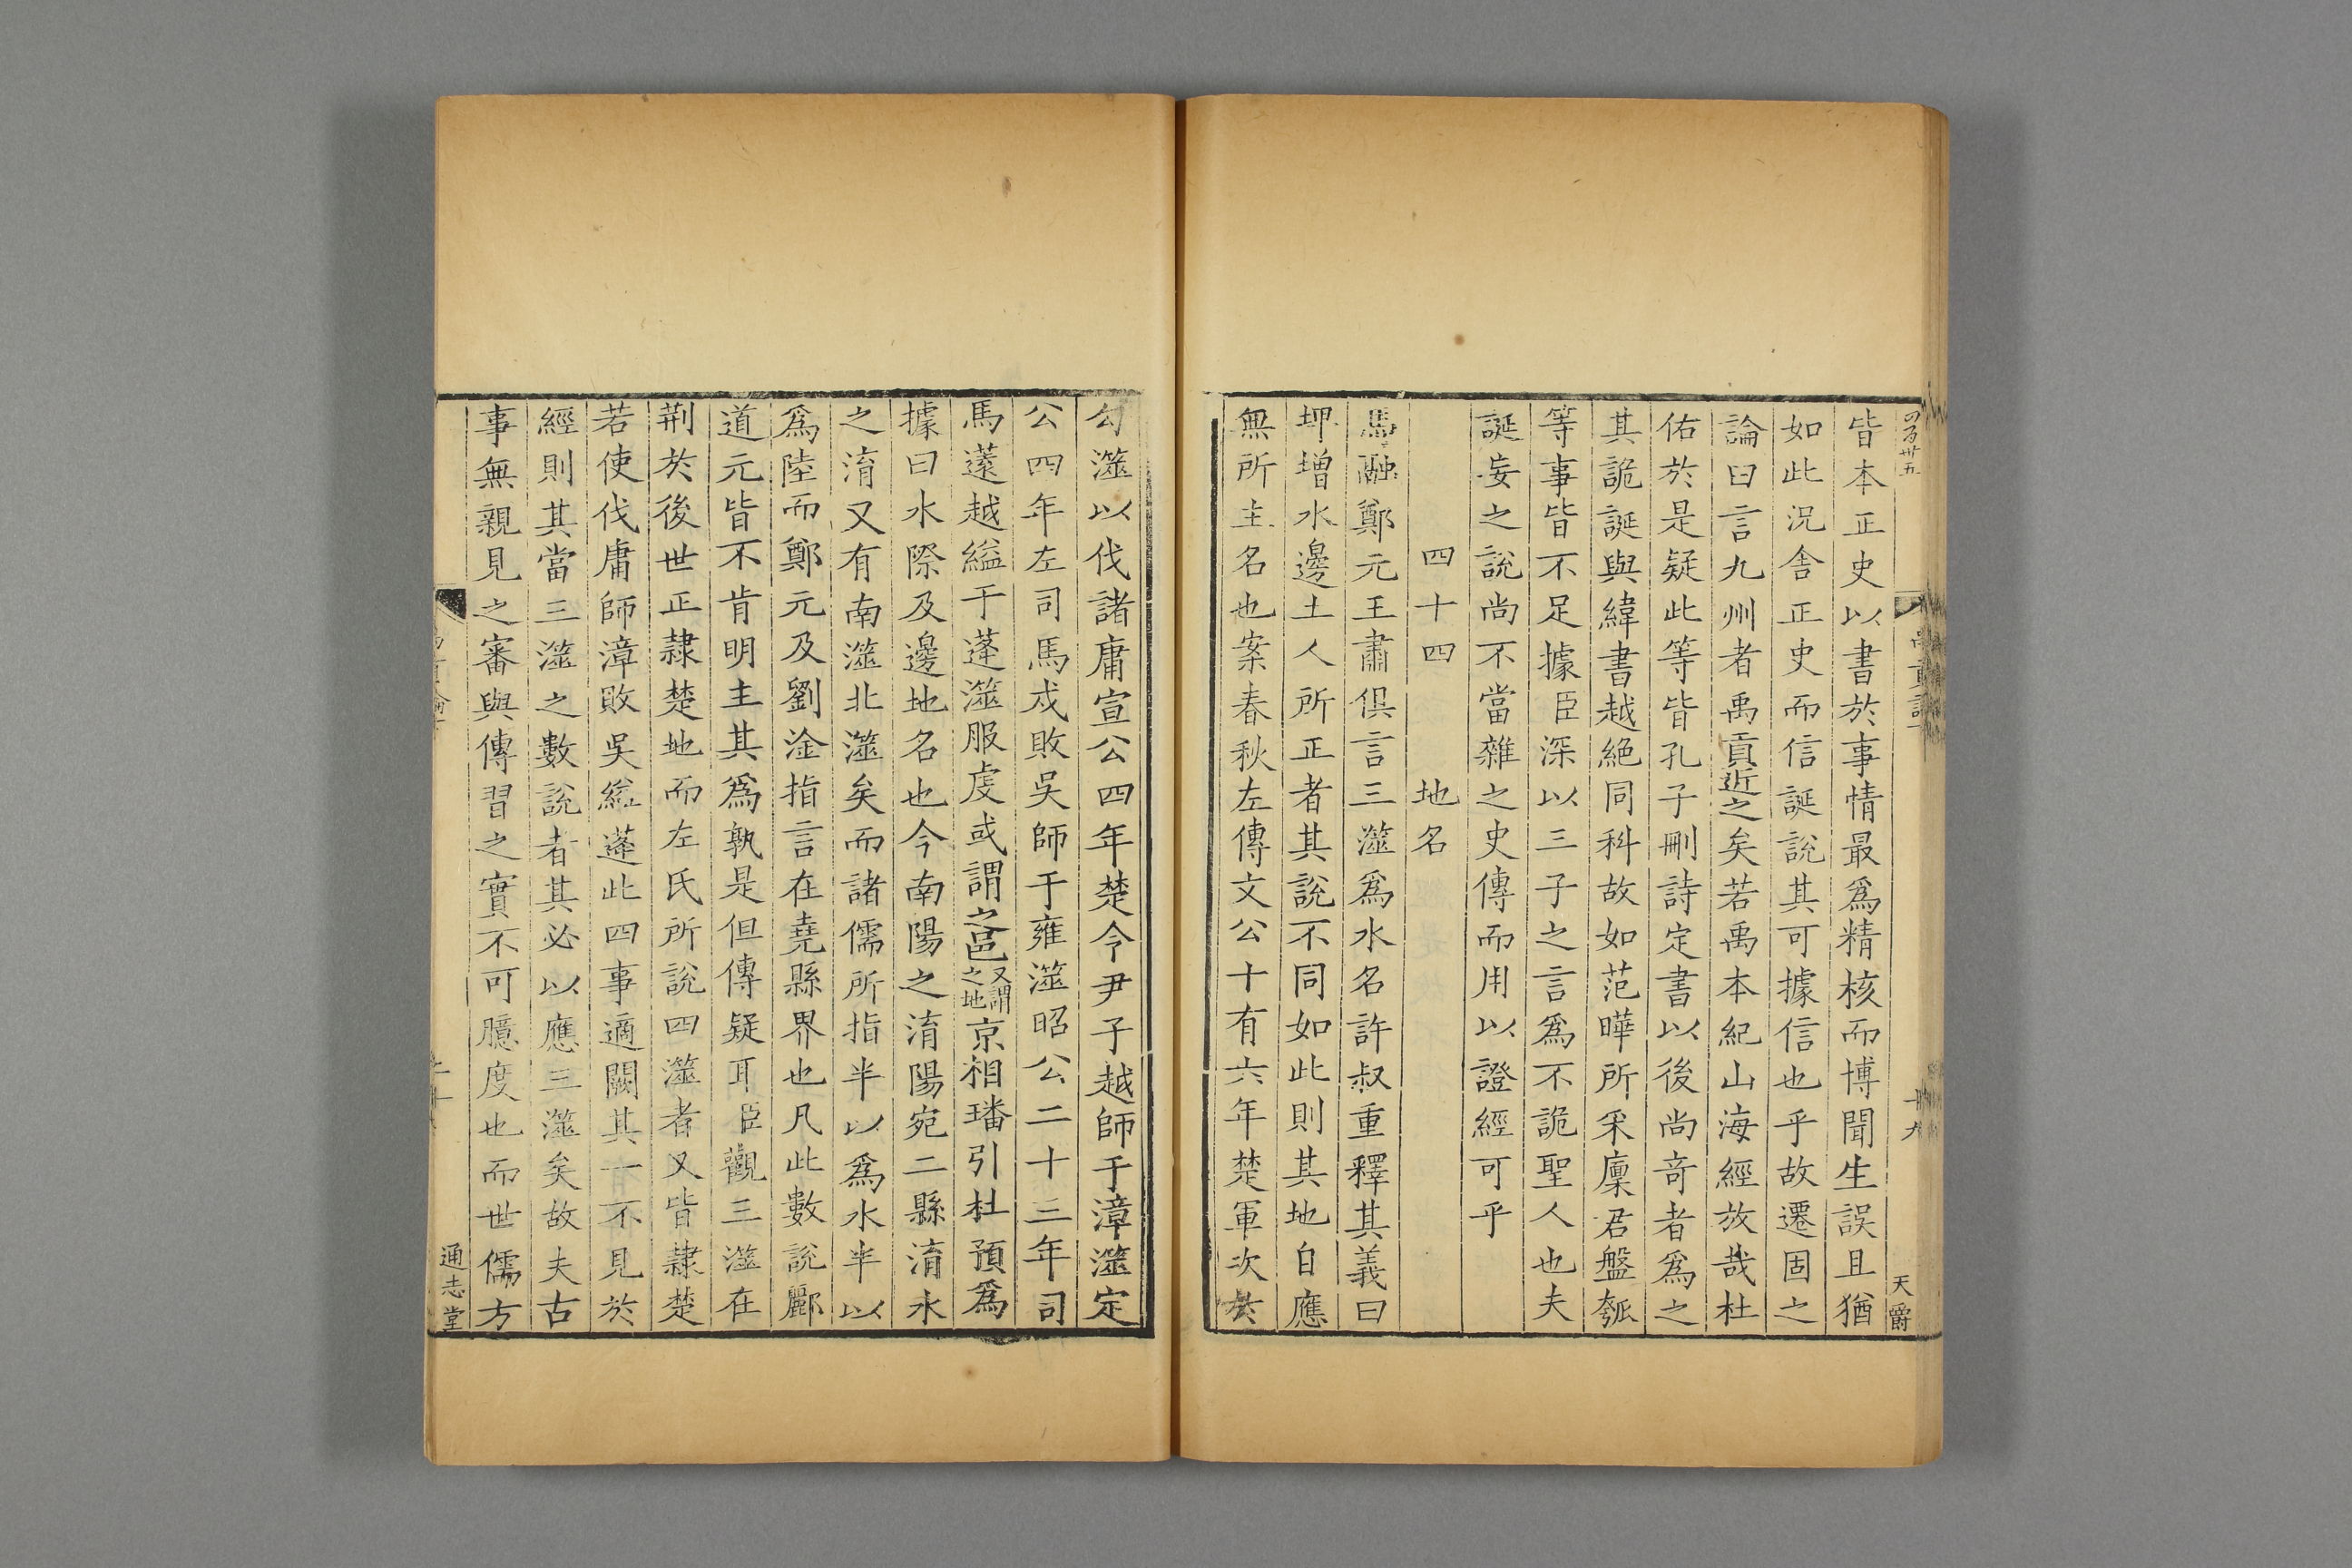 皆本正史以書於事情最爲精核而博聞生誤且猶
如此況舍正史而信誕說其可據信也乎故遷固之
論曰言九州者禹貢近之矣若禹本紀山海經放哉杜
佑於是疑此等皆孔子刪詩定書以後尚奇者爲之
其詭誕與緯書越絕同科故如范曄所采廩君盤瓠
等事皆不足據臣深以三子之言爲不詭聖人也夫
誕妄之說尚不當雜之史傳而用以證經可乎
四十四 地名
馬融鄭元王肅俱言三澨爲水名許叔重釋其義曰
埤增水邊土人所正者其說不同如此則其地自應
無所主名也案春秋左傳文公十有六年楚軍次於
勾澨以伐諸庸宣公四年楚令尹子越師于漳澨定
公四年左司馬戍敗吳師于雍澨昭公二十三年司
馬薳越縊于薳澨服虔或謂之邑又謂之地京相璠引杜預爲
據曰水際及邊地名也今南陽之淯陽宛二縣淯水
之淯又有南澨北澨矣而諸儒所指半以爲水半以
爲陸而鄭元及劉淦指言在堯縣界也凡此數說酈
道元皆不肯明主其爲孰是但傳疑耳臣觀三澨在
荆於後世正隷楚地而左氏所說四澨者又皆隷楚
若使伐庸師漳敗吳縊薳此四事適闕其一不見於
經則其當三澨之數說者其必以應三澨矣故夫古
事無親見之審與傳習之實不可臆度也而世儒方
十九
天爵
通志堂